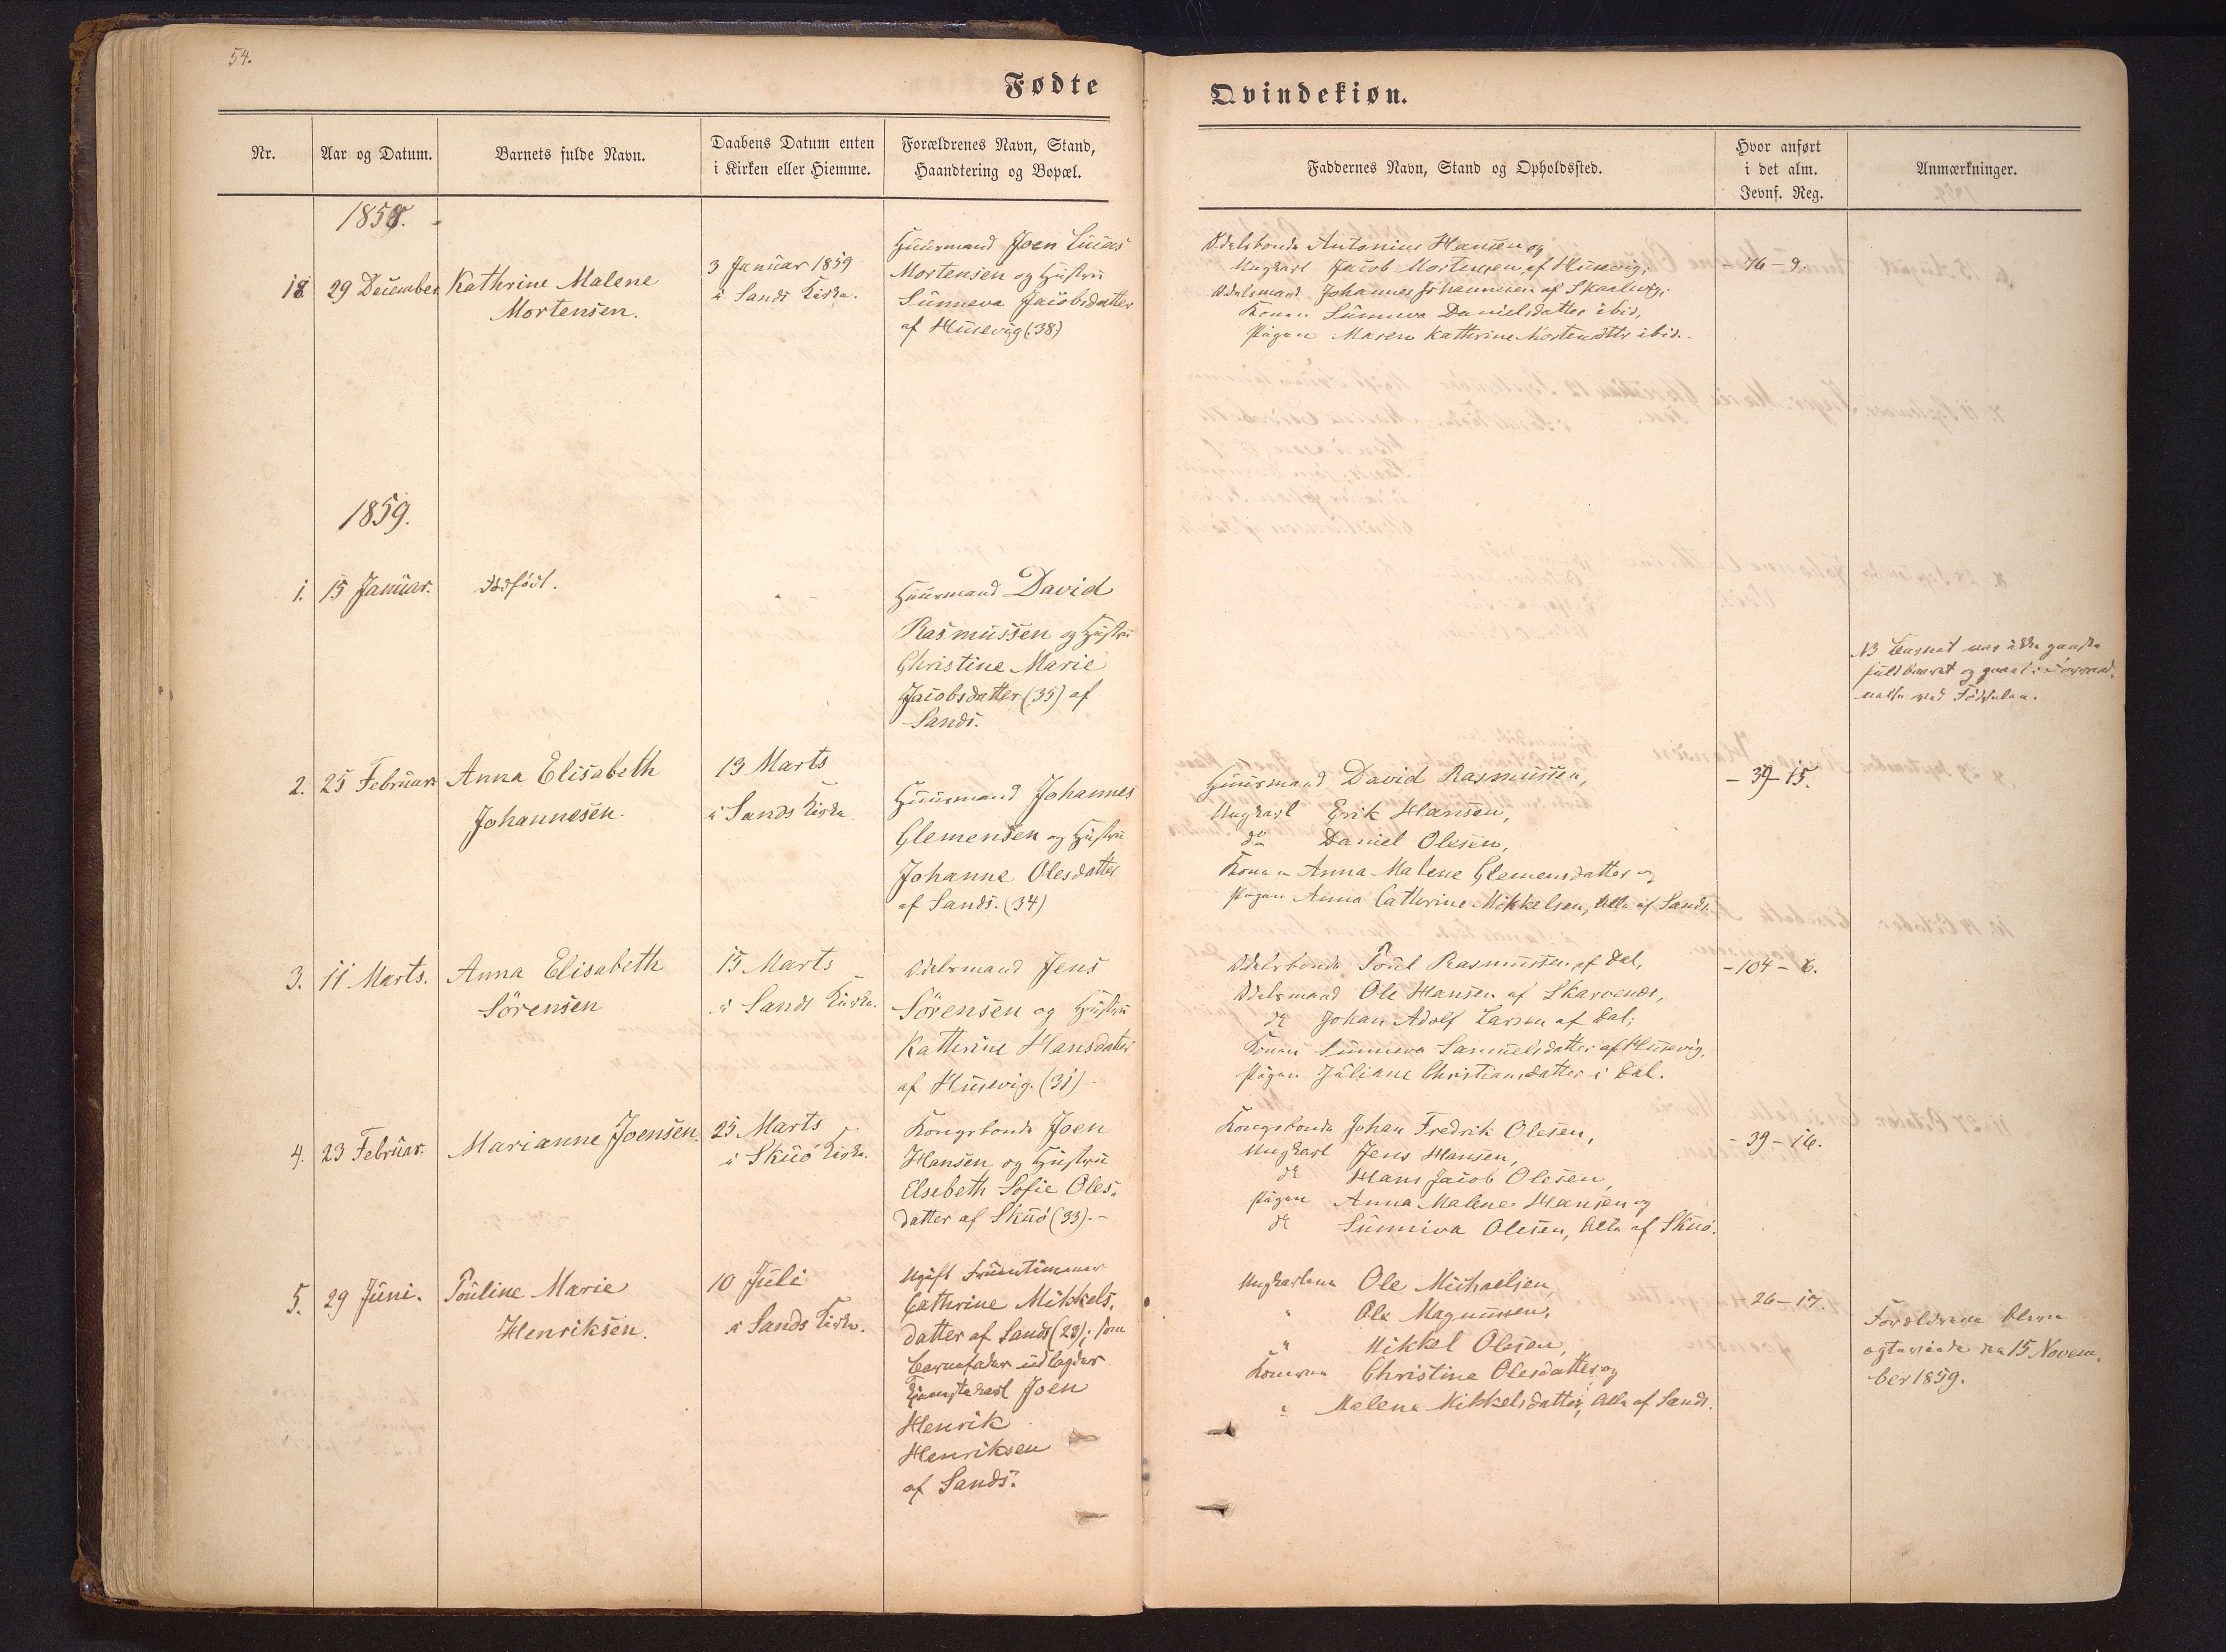 54.
Fødte
Qvindekiøn.
Nr.
Aar og Datum.
Barnets fulde Navn.
Daabens Datum enten
i Kirken eller Hiemme.
Forældrenes Navn, Stand,
Haandtering og Bopæl.
Faddernes Navn, Stand og Opholdssted.
Hvor anført
i det alm.
Jevnf. Reg.
Anmærkninger.
1858.
18.
29 December
Kathrine Malene
Mortensen.
3 Januar 1859
i Sands Kirke.
Huusmand Joen Lucas
Mortensen og Hustru
Sunneva Jacobsdatter
af Husevig (38)
Odelsbonde Antonius Hansen og
Ungkarl Jacob Mortensen, af Husevig;
Odelsmand Johannes Johannesen af Skaalevig;
Konen Sunneva Danielsdatter ibid,
Pigen Maren Kathrine Mortensdttr ibid.
- 76 - 9.
1859.
1.
15 Januar.
Dødfødt.
Huusmand David
Rasmussen og Hustru
Christine Marie
Jacobsdatter (35) af
Sands.
NB Barnet var ikke ganske
fuldbaaret og qvalt i
ved Fødselen.
2.
25 Februar
Anna Elisabeth
Johannesen.
13 Marts
i Sands Kirke
Huusmand Johannes
Clemensen og Hustru
Johanne Olesdatter
af Sands. (34)
Huusmand David Rasmussen,
Ungkarl Erik Hansen,
do Daniel Olesen,
Konen Anna Malene Clemensdatter og
Pigen Anna Cathrine Mikkelsen, Alle af Sands.
- 39 - 15.
3.
11 Marts.
Anna Elisabeth
Sörensen
15 Marts
i Sands Kirke.
Odelsmand Jens
Sörensen og Hustru
Kathrine Hansdatter
af Husevig. (31)
Odelsbonde Poul Rasmussen af Dal,
Odelsmand Ole Hansen af Skarvenes,
do Johan Adolf Larsen af Dal;
Konen Sunneva Samuelsdatter af Husevig,
Pigen Juliane Christiansdatter i Dal.
- 104 - 6.
4.
23 Februar.
Marianne Joensen.
25 Marts
i Skuö Kirke.
Kongsbonde Joen
Hansen og Hustru
Elsebeth Sofie Oles-
datter af Skuö (33).-
Kongsbonde Johan Fredrik Olesen,
Ungkarl Jens Hansen,
do Hans Jacob Olesen,
Pigen Anna Malene Hansen og
do Sunniva Olesen, Alle af Skuö.
- 39 - 16.
5.
29 Juni.
Pouline Marie
Henriksen.
10 Juli
i Sands Kirke.
Ugift Fruentimmer
Cathrine Mikkels-
datter af Sands (23); som
Barnefader udlagdes
Tjenestekarl Joen
Henrik
Henriksen
af Sands.
Ungkarlene Ole Michaelsen,
" Ole Magnussen,
" Mikkel Olesen,
Konerne Christine Olesdatter og
" Malene Mikkelsdatter, Alle af Sands.
- 26 - 17.
Forældrene bleve
ægteviede den 15 Novem-
ber 1859.